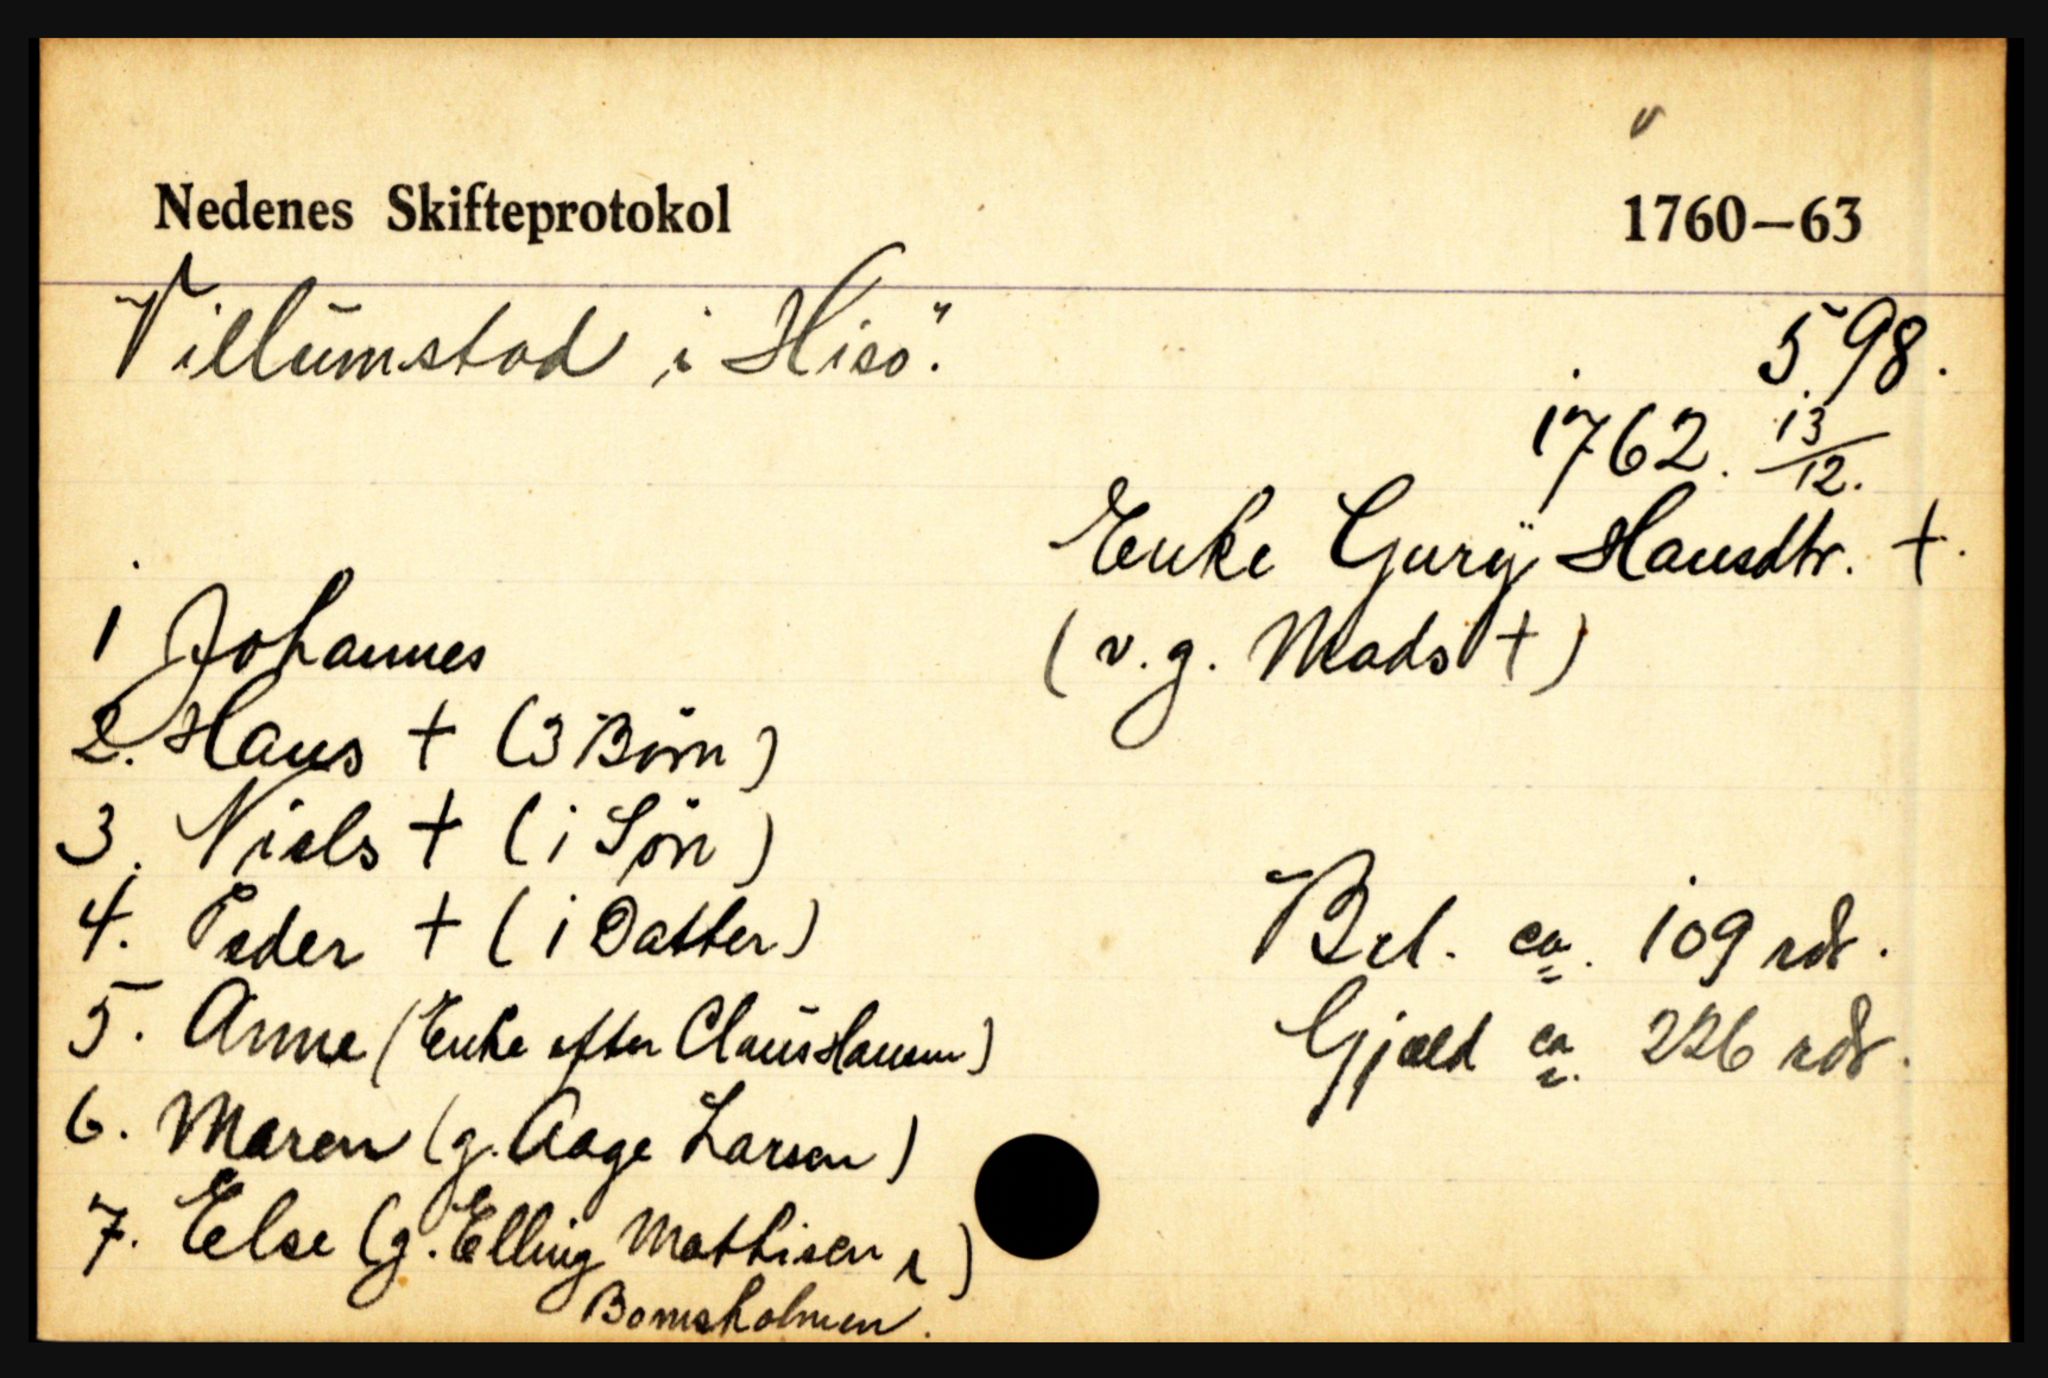 v
Nedenes Skifteprotokol 1760—63
Villumstad i Hisö.
598.
1762. 13/12.
Enke Gurÿ Hansdtr. +.
(v.g. Mads +)
1 Johannes
2. Hans + (3 Börn)
3. Niels + (1 Sön)
4. Peder + (1 Datter)
5. Anne (Enke efter Claus Hansen)
6. Maren (g. Aage Larsen)
7. Else (g. Elling Mathisen i)
Bomsholmen.
Bel. ca. 109 rdr.
Gjæld ca. 226 rdr.